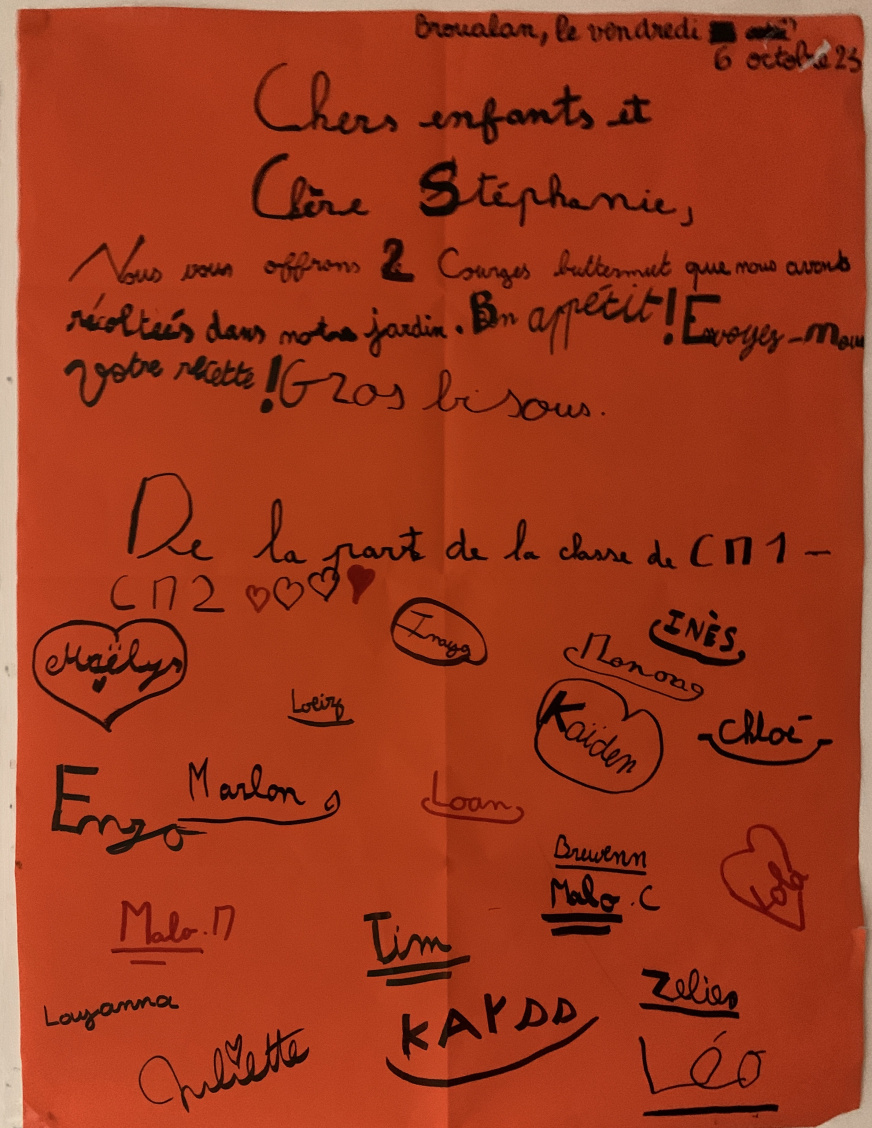 Broualan, le vendredi
6 octobre 23
Chers enfants et
Chère Stéphanie,
Nous vous offrons 2 Courges butternut que nous avons
récoltées dans notre jardin. Bon appétit ! Envoyez-nous
votre recette ! Gros bisous.
De la part de la classe de CM1 -
CM2
Maëlys
Inaya
INÈS
Manon
Loeiz
Kaïden
Chloé
Enzo
Marlon
Loan
Brewenn
Malo.C
Lola
Malo.M
Tim
Zélie
Louzanna
Juliette
KAYSS
Léo